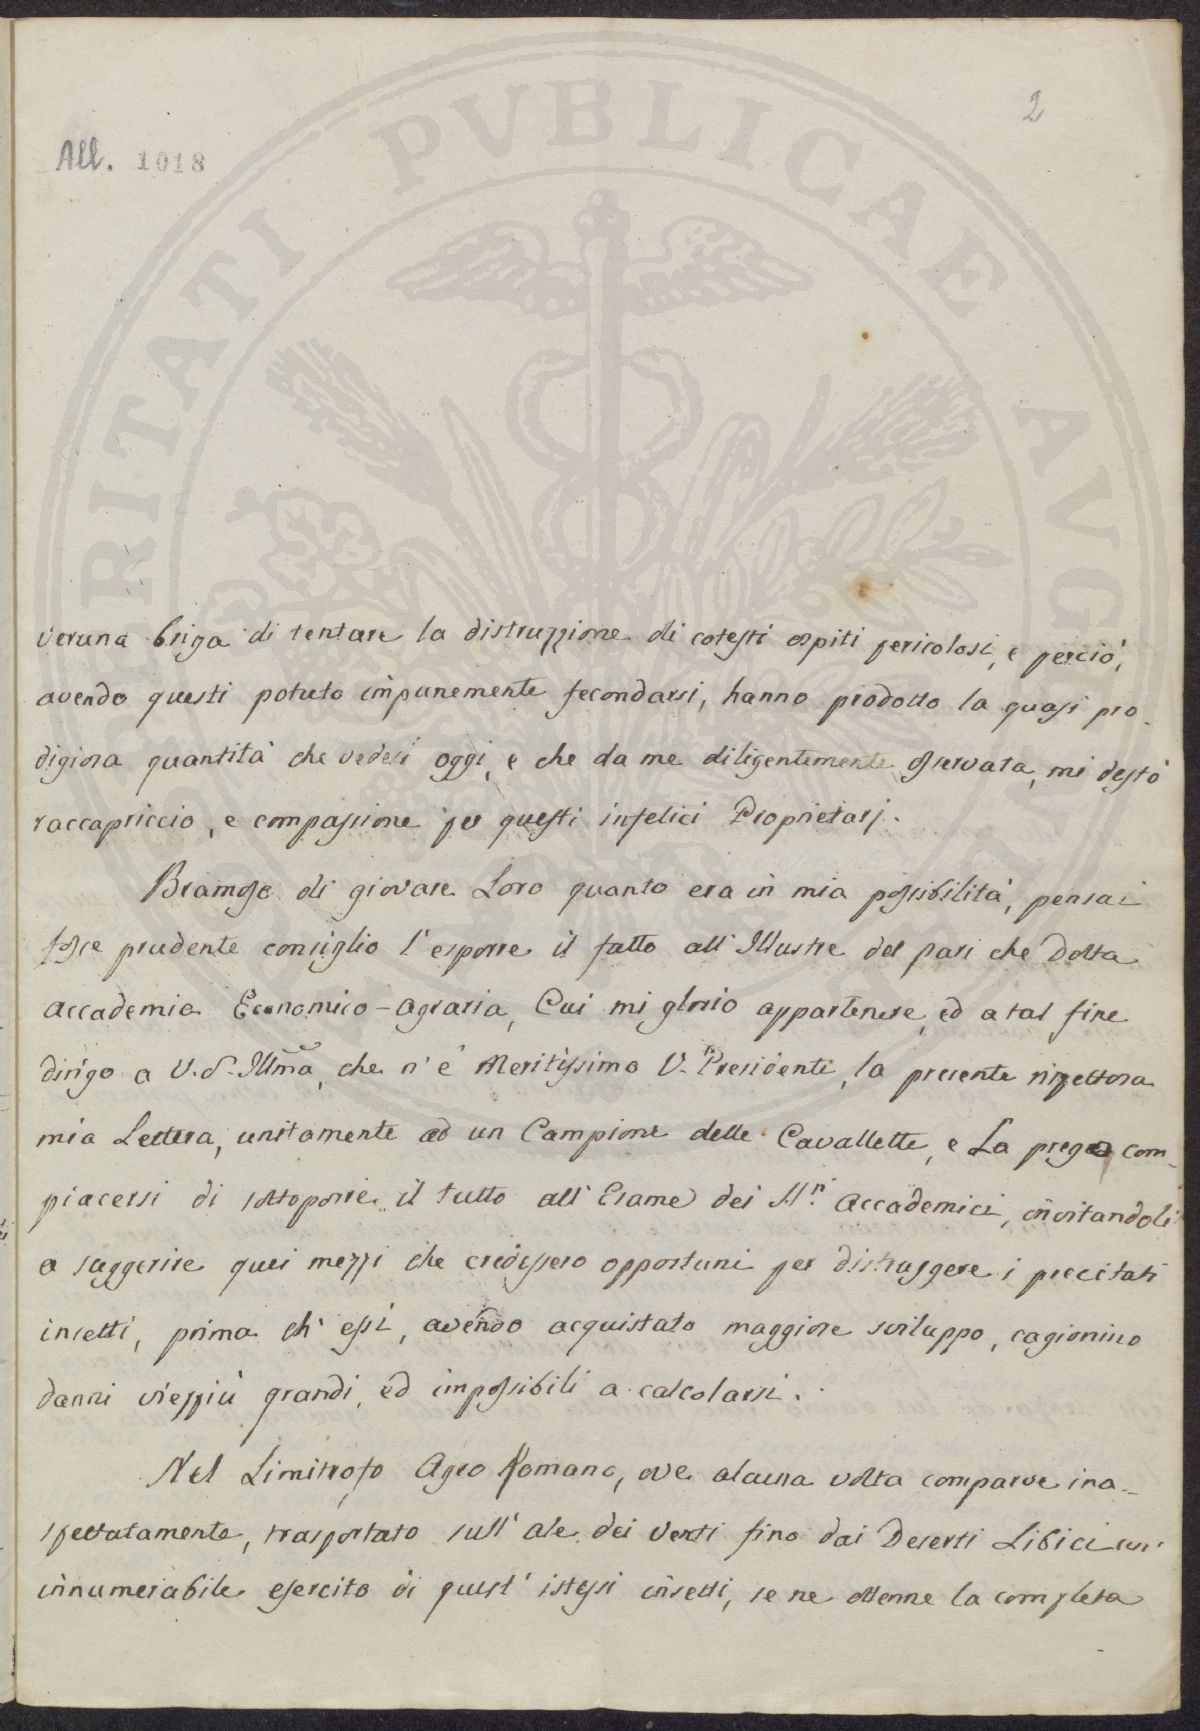 2
All. 1018
PVBLICAE AVG
RITATI
veruna briga di tentare la distruzzione di cotesti ospiti pericolosi, e perciò,
avendo questi potuto impunemente fecondarsi, hanno prodotto la quasi pro-
digiosa quantità che vedesi oggi, e che da me diligentemente osservata, mi destò
raccapriccio, e compassione per questi infelici Proprietarj.
Bramoso di giovare Loro quanto era in mia possibilità, pensai
fosse prudente consiglio l'esporre il fatto all'Illustre del pari che Dotta
Accademia Economico-Agraria, Cui mi glorio appartenere, ed a tal fine
dirigo a V. S. Illma, che n'è Meritissimo V. Presidente, la presente rispettosa
mia Lettera, unitamente ad un Campione delle Cavallette, e La prego com-
piacersi di sottoporre il tutto all'Esame dei SSri Accademici, invitandoli
a suggerire quei mezzi che credessero opportuni per distruggere i precitati
insetti, prima ch'essi, avendo acquistato maggiore sviluppo, cagionino
danni viezpiù grandi, ed impossibili a calcolarsi.
Nel Limitrofo Agro Romano, ove alcuna volta comparve ina-
spettatamente, trasportato sull'ale dei venti fino dai Deserti Libici un'
innumerabile esercito di quest'istessi insetti, se ne ottenne la completa